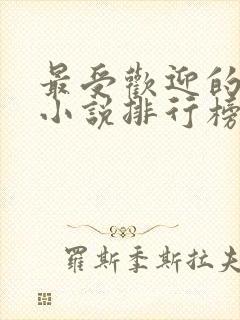 最受歡迎的
小說排行榜
羅斯季斯拉夫